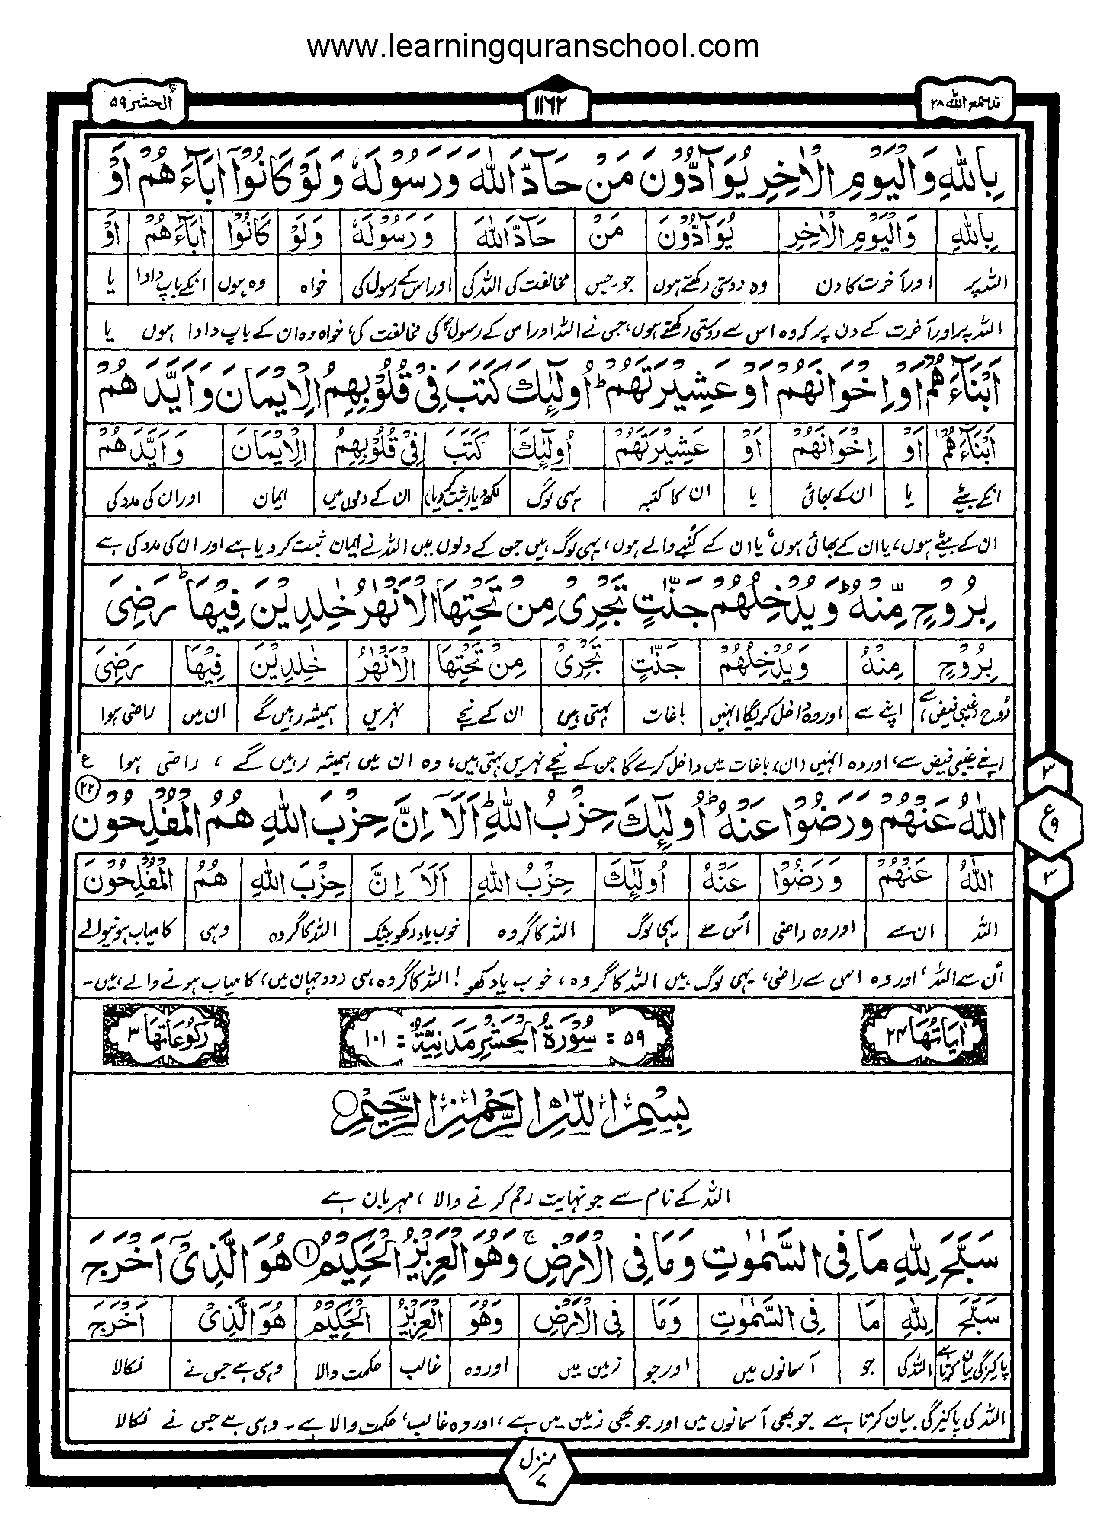 www.learningquranschool.com
قد سمع الله ٢٨
١١٦٢
الحشر ٥٩
بِاللّٰهِ وَالْيَوْمِ الْاٰخِرِ يُوَآدُّوْنَ مَنْ حَآدَّ اللّٰهَ وَرَسُوْلَهٗ وَلَوْ كَانُوْٓا اٰبَآءَهُمْ اَوْ
بِاللّٰهِ وَالْيَوْمِ الْاٰخِرِ يُوَآدُّوْنَ مَنْ حَآدَّ اللّٰهَ وَرَسُوْلَهٗ وَلَوْ كَانُوْٓا اٰبَآءَهُمْ اَوْ
اللہ پر اور آخرت کا دن وہ دوستی رکھتے ہوں جو۔جس مخالفت کی اللہ کی اور اس کے رسول کی خواہ وہ ہوں انکے باپ دادا یا
اللہ پر اور آخرت کے دن پر کہ وہ اس سے دوستی رکھتے ہوں، جس نے اللہ اور اس کے رسولؐ کی مخالفت کی، خواہ وہ ان کے باپ دادا ہوں یا
اَبْنَآءَهُمْ اَوْ اِخْوَانَهُمْ اَوْ عَشِيْرَتَهُمْ ؕ اُولٰٓئِكَ كَتَبَ فِيْ قُلُوْبِهِمُ الْاِيْمَانَ وَاَيَّدَهُمْ
اَبْنَآءَهُمْ اَوْ اِخْوَانَهُمْ اَوْ عَشِيْرَتَهُمْ اُولٰٓئِكَ كَتَبَ فِيْ قُلُوْبِهِمُ الْاِيْمَانَ وَاَيَّدَهُمْ
انکے بیٹے یا ان کے بھائی یا ان کا کنبہ یہی لوگ لکھ دیا۔ثبت کر دیا ان کے دلوں میں ایمان اور ان کی مدد کی
ان کے بیٹے ہوں، یا ان کے بھائی ہوں، یا ان کے کنبے والے ہوں، یہی لوگ ہیں جن کے دلوں میں اللہ نے ایمان ثبت کر دیا ہے اور ان کی مدد کی ہے
بِرُوْحٍ مِّنْهُ ؕ وَيُدْخِلُهُمْ جَنّٰتٍ تَجْرِيْ مِنْ تَحْتِهَا الْاَنْهٰرُ خٰلِدِيْنَ فِيْهَا ؕ رَضِيَ
بِرُوْحٍ مِنْهُ وَيُدْخِلُهُمْ جَنّٰتٍ تَجْرِيْ مِنْ تَحْتِهَا الْاَنْهٰرُ خٰلِدِيْنَ فِيْهَا رَضِيَ
رُوح (غیبی فیض) سے اپنے سے اور وہ داخل کریگا انہیں باغات بہتی ہیں ان کے نیچے نہریں ہمیشہ رہیں گے ان میں راضی ہوا
اپنے غیبی فیض سے، اور وہ انہیں (ان) باغات میں داخل کرے گا جن کے نیچے نہریں بہتی ہیں، وہ ان میں ہمیشہ رہیں گے، راضی ہوا ع
اللّٰهُ عَنْهُمْ وَرَضُوْا عَنْهُ ؕ اُولٰٓئِكَ حِزْبُ اللّٰهِ ؕ اَلَآ اِنَّ حِزْبَ اللّٰهِ هُمُ الْمُفْلِحُوْنَ ٢٢
٣ ع ٩ ٣
اللّٰهُ عَنْهُمْ وَرَضُوْا عَنْهُ اُولٰٓئِكَ حِزْبُ اللّٰهِ اَلَآ اِنَّ حِزْبَ اللّٰهِ هُمُ الْمُفْلِحُوْنَ
اللہ ان سے اور وہ راضی اُس سے یہی لوگ اللہ کا گروہ خوب یاد رکھو بیشک اللہ کا گروہ وہی کامیاب ہونیوالے
اُن سے اللہ، اور وہ اس سے راضی، یہی لوگ ہیں اللہ کا گروہ، خوب یاد رکھو! اللہ کا گروہ ہی (دو جہان میں) کامیاب ہونے والے ہیں۔
اٰيَاتُهَا ٢٤
٥٩ = سُوْرَةُ الْحَشْرِ مَدَنِيَّةٌ = ١٠١
رُكُوْعَاتُهَا ٣
بِسْمِ اللّٰهِ الرَّحْمٰنِ الرَّحِيْمِ
اللہ کے نام سے جو نہایت رحم کرنے والا، مہربان ہے
سَبَّحَ لِلّٰهِ مَا فِي السَّمٰوٰتِ وَمَا فِي الْاَرْضِ ۚ وَهُوَ الْعَزِيْزُ الْحَكِيْمُ ١ هُوَ الَّذِيْٓ اَخْرَجَ
سَبَّحَ لِلّٰهِ مَا فِي السَّمٰوٰتِ وَمَا فِي الْاَرْضِ وَهُوَ الْعَزِيْزُ الْحَكِيْمُ هُوَ الَّذِيْٓ اَخْرَجَ
پاکیزگی بیان کرتا ہے اللہ کی جو آسمانوں میں اور جو زمین میں اور وہ غالب حکمت والا وہی ہے جس نے نکالا
اللہ کی پاکیزگی بیان کرتا ہے جو بھی آسمانوں میں اور جو بھی زمین میں ہے، اور وہ غالب، حکمت والا ہے۔ وہی ہے جس نے نکالا
منزل ٧